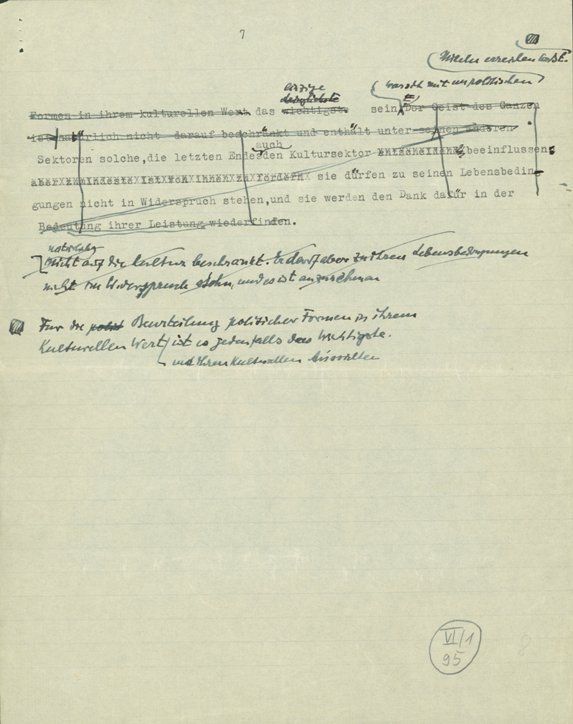 7
welche erreichen lässt.
einzige
was oft mit unpolitischen
Formen in ihrem kulturellen Wert das wichtigste sein. Der Geist des Ganzen
ist natürlich nicht darauf beschränkt und enthält unter seinen anderen
auch
Sektoren solche, die letzten Endes den Kultursektor entscheidend beeinflussen;
aber zumindest ist von ihnen zu fordern sie dürfen zu seinen Lebensbedin-
gungen nicht in Widerspruch stehen, und sie werden den Dank dafür in der
Bedeutung ihrer Leistung wiederfinden.
natürlich
nicht auf die Kultur beschränkt. Er darf aber zu ihren Lebensbedingungen
nicht im Widerspruch stehn, und es ist anzunehmen
Für die Beurteilung politischer Formen in ihrem
kulturellen Wert ist es jedenfalls das Wichtigste.
und ihren kulturellen
VI/1
95
8